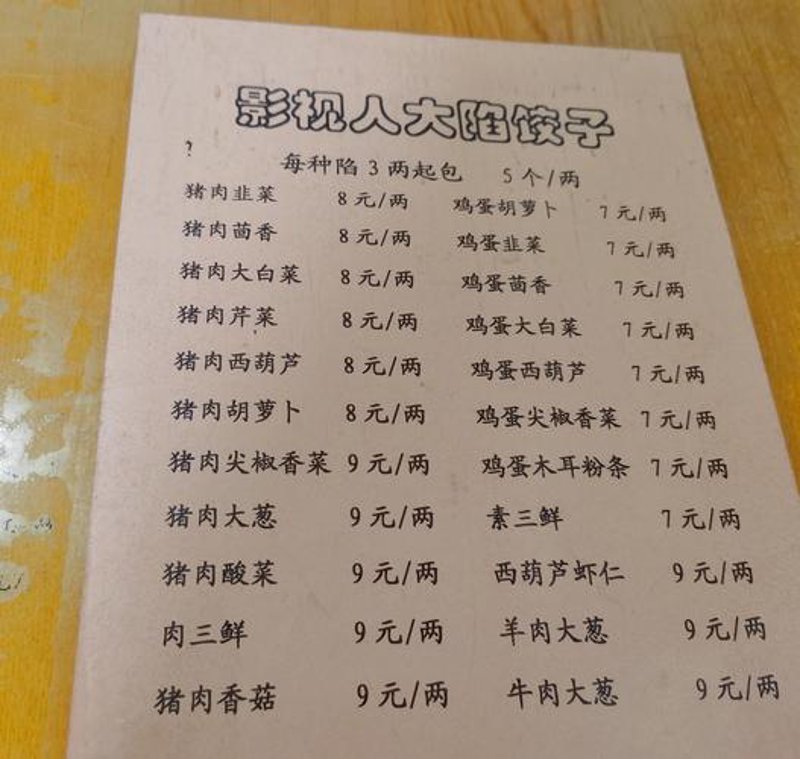 影视人大陷饺子
?
每种陷3两起包 5个/两
猪肉韭菜 8元/两 鸡蛋胡萝卜 7元/两
猪肉茴香 8元/两 鸡蛋韭菜 7元/两
猪肉大白菜 8元/两 鸡蛋茴香 7元/两
猪肉芹菜 8元/两 鸡蛋大白菜 7元/两
猪肉西葫芦 8元/两 鸡蛋西葫芦 7元/两
猪肉胡萝卜 8元/两 鸡蛋尖椒香菜 7元/两
猪肉尖椒香菜 9元/两 鸡蛋木耳粉条 7元/两
猪肉大葱 9元/两 素三鲜 7元/两
猪肉酸菜 9元/两 西葫芦虾仁 9元/两
肉三鲜 9元/两 羊肉大葱 9元/两
猪肉香菇 9元/两 牛肉大葱 9元/两